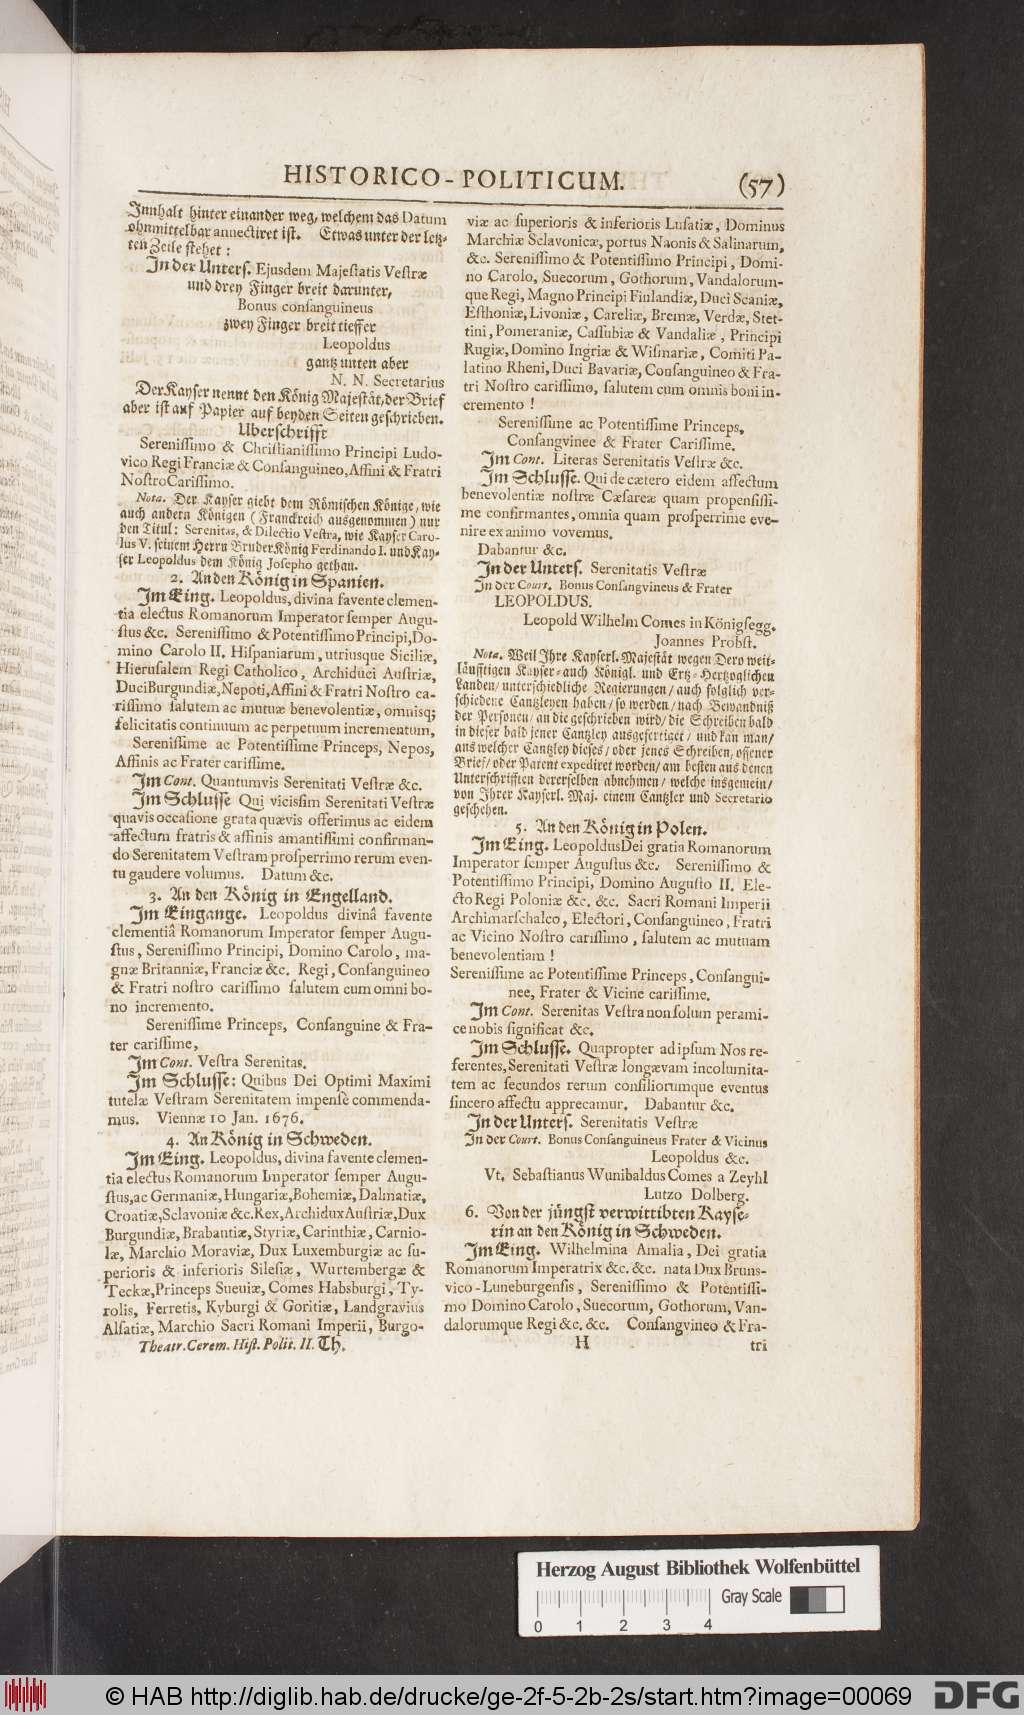 HISTORICO-POLITICUM. (57)
Innhalt hinter einander weg, welchem das Datum
ohnmittelbar annectiret ist. Etwas unter der letz-
ten Zeile stehet:
In der Unters. Ejusdem Majestatis Vestræ
und drey Finger breit darunter,
Bonus consanguineus
zwey Finger breit tieffer
Leopoldus
gantz unten aber
N. N. Secretarius
Der Kayser nennt den König Majestät, der Brief
aber ist auf Papier auf beyden Seiten geschrieben.
Uberschrifft
Serenissimo & Christianissimo Principi Ludo-
vico Regi Franciæ & Consanguineo, Affini & Fratri
Nostro Carissimo.
Nota. Der Kayser giebt dem Römischen Könige, wie
auch andern Königen (Franckreich ausgenommen) nur
den Titul: Serenitas, & Dilectio Vestra, wie Kayser Caro-
lus V. seinem Herrn Bruder König Ferdinando I. und Kay-
ser Leopoldus dem König Josepho gethan.
2. An den König in Spanien.
Im Eing. Leopoldus, divina favente clemen-
tia electus Romanorum Imperator semper Augu-
stus &c. Serenissimo & Potentissimo Principi, Do-
mino Carolo II. Hispaniarum, utriusque Siciliæ,
Hierusalem Regi Catholico, Archiduci Austriæ,
Duci Burgundiæ, Nepoti, Affini & Fratri Nostro ca-
rissimo salutem ac mutuæ benevolentiæ, omnisq;
felicitatis continuum ac perpetuum incrementum,
Serenissime ac Potentissime Princeps, Nepos,
Affinis ac Frater carissime.
Im Cont. Quantumvis Serenitati Vestræ &c.
Im Schlusse Qui vicissim Serenitati Vestræ
quavis occasione grata quævis offerimus ac eidem
affectum fratris & affinis amantissimi confirman-
do Serenitatem Vestram prosperrimo rerum even-
tu gaudere volumus. Datum &c.
3. An den König in Engelland.
Im Eingange. Leopoldus divinâ favente
clementiâ Romanorum Imperator semper Augu-
stus, Serenissimo Principi, Domino Carolo, ma-
gnæ Britanniæ, Franciæ &c. Regi, Consanguineo
& Fratri nostro carissimo salutem cum omni bo-
no incremento.
Serenissime Princeps, Consanguine & Fra-
ter carissime,
Im Cont. Vestra Serenitas.
Im Schlusse: Quibus Dei Optimi Maximi
tutelæ Vestram Serenitatem impensè commenda-
mus. Viennæ 10 Jan. 1676.
4. An König in Schweden.
Im Eing. Leopoldus, divina favente clemen-
tia electus Romanorum Imperator semper Augu-
stus, ac Germaniæ, Hungariæ, Bohemiæ, Dalmatiæ,
Croatiæ, Sclavoniæ &c. Rex, Archidux Austriæ, Dux
Burgundiæ, Brabantiæ, Styriæ, Carinthiæ, Carnio-
læ, Marchio Moraviæ, Dux Luxemburgiæ ac su-
perioris & inferioris Silesiæ, Wurtembergæ &
Teckæ, Princeps Sueviæ, Comes Habsburgi, Ty-
rolis, Ferretis, Kyburgi & Goritiæ, Landgravius
Alsatiæ, Marchio Sacri Romani Imperii, Burgo-
Theatr. Cerem. Hist. Polit. II. Th.
viæ ac superioris & inferioris Lusatiæ, Dominus
Marchiæ Sclavonicæ, portus Naonis & Salinarum,
&c. Serenissimo & Potentissimo Principi, Domi-
no Carolo, Suecorum, Gothorum, Vandalorum-
que Regi, Magno Principi Finlandiæ, Duci Scaniæ,
Esthoniæ, Livoniæ, Careliæ, Bremæ, Verdæ, Stet-
tini, Pomeraniæ, Cassubiæ & Vandaliæ, Principi
Rugiæ, Domino Ingriæ & Wismariæ, Comiti Pa-
latino Rheni, Duci Bavariæ, Consanguineo & Fra-
tri Nostro carissimo, salutem cum omnis boni in-
cremento!
Serenissime ac Potentissime Princeps,
Consangvinee & Frater Carissime.
Im Cont. Literas Serenitatis Vestræ &c.
Im Schlusse. Qui de cætero eidem affectum
benevolentiæ nostræ Cæsareæ quam propensissi-
me confirmantes, omnia quam prosperrime eve-
nire ex animo vovemus.
Dabantur &c.
In der Unters. Serenitatis Vestræ
In der Court. Bonus Consangvineus & Frater
LEOPOLDUS.
Leopold Wilhelm Comes in Königsegg.
Joannes Probst.
Nota. Weil Ihre Kayserl. Majestät wegen Dero weit-
läufftigen Kayser- auch Königl. und Ertz-Hertzoglichen
Landen/ unterschiedliche Regierungen/ auch folglich ver-
schiedene Cantzleyen haben/ so werden/ nach Bewandniß
der Personen/ an die geschrieben wird/ die Schreiben bald
in dieser bald jener Cantzley ausgefertiget/ und kan man/
aus welcher Cantzley dieses/ oder jenes Schreiben, offener
Brief/ oder Patent expediret worden/ am besten aus denen
Unterschrifften dererselben abnehmen/ welche insgemein/
von Ihrer Kayserl. Maj. einem Cantzler und Secretario
geschehen.
5. An den König in Polen.
Im Eing. Leopoldus Dei gratia Romanorum
Imperator semper Augustus &c. Serenissimo &
Potentissimo Principi, Domino Augusto II. Ele-
cto Regi Poloniæ &c. &c. Sacri Romani Imperii
Archimarschalco, Electori, Consanguineo, Fratri
ac Vicino Nostro carissimo, salutem ac mutuam
benevolentiam!
Serenissime ac Potentissime Princeps, Consangui-
nee, Frater & Vicine carissime.
Im Cont. Serenitas Vestra non solum perami-
ce nobis significat &c.
Im Schlusse. Quapropter ad ipsum Nos re-
ferentes, Serenitati Vestræ longævam incolumita-
tem ac secundos rerum consiliorumque eventus
sincero affectu apprecamur. Dabantur &c.
In der Unters. Serenitatis Vestræ
In der Court. Bonus Consanguineus Frater & Vicinus
Leopoldus &c.
Vt. Sebastianus Wunibaldus Comes a Zeyhl
Lutzo Dolberg.
6. Von der jüngst verwittibten Kayse-
rin an den König in Schweden.
Im Eing. Wilhelmina Amalia, Dei gratia
Romanorum Imperatrix &c. &c. nata Dux Bruns-
vico-Luneburgensis, Serenissimo & Potentissi-
mo Domino Carolo, Suecorum, Gothorum, Van-
dalorumque Regi &c. &c. Consangvineo & Fra-
H tri
Herzog August Bibliothek Wolfenbüttel
0 1 2 3 4 Gray Scale
© HAB http://diglib.hab.de/drucke/ge-2f-5-2b-2s/start.htm?image=00069 DFG